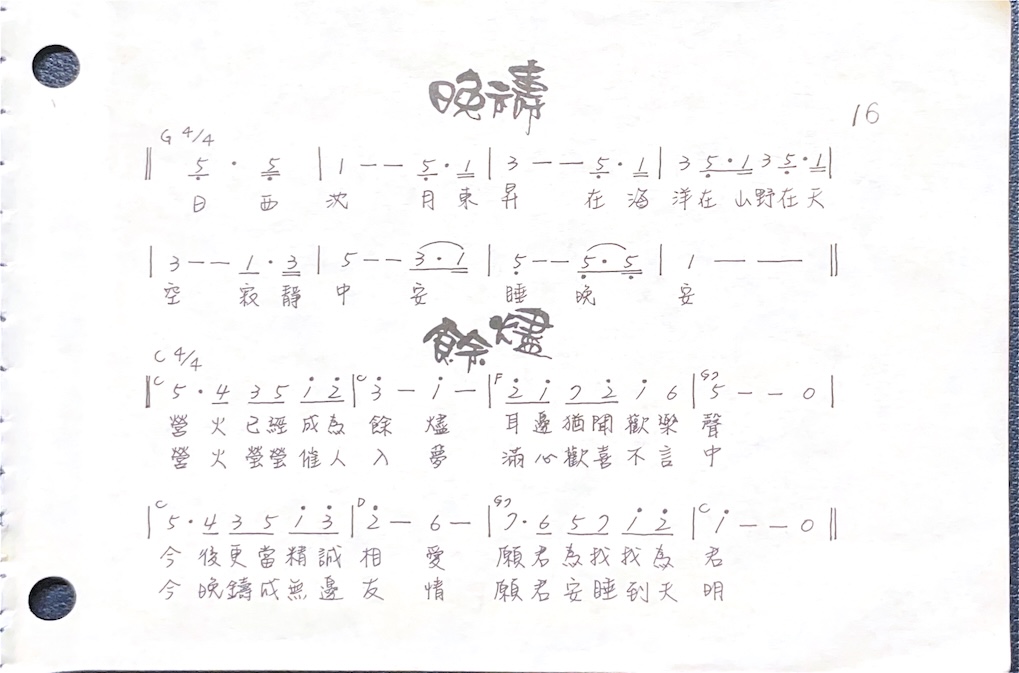 晚禱
16
G 4/4
‖ 5̣ · 5̣ | 1 – – 5̣ · 1 | 3 – – 5̣ · 1 | 3 5̣ · 1 3 5̣ · 1 |
日 西 沈 月 東 昇 在 海 洋 在 山 野 在 天
| 3 – – 1 · 3 | 5 – – 3 · 1 | 5̣ – – 5̣ · 5̣ | 1 – – – ‖
空 寂 靜 中 安 睡 晚 安
餘燼
C 4/4
C C F G7
‖ 5 · 4 3 5 1̇ 2̇ | 3̇ – 1̇ – | 2̇ 1̇ 7 2̇ 1̇ 6 | 5 – – 0 |
營 火 已 經 成 為 餘 燼 耳 邊 猶 聞 歡 樂 聲
營 火 螢 螢 催 人 入 夢 滿 心 歡 喜 不 言 中
C D G7 C
| 5 · 4 3 5 1̇ 3̇ | 2̇ – 6 – | 7 · 6 5 7 1̇ 2̇ | 1̇ – – 0 ‖
今 後 更 當 精 誠 相 愛 願 君 為 我 我 為 君
今 晚 鑄 成 無 邊 友 情 願 君 安 睡 到 天 明